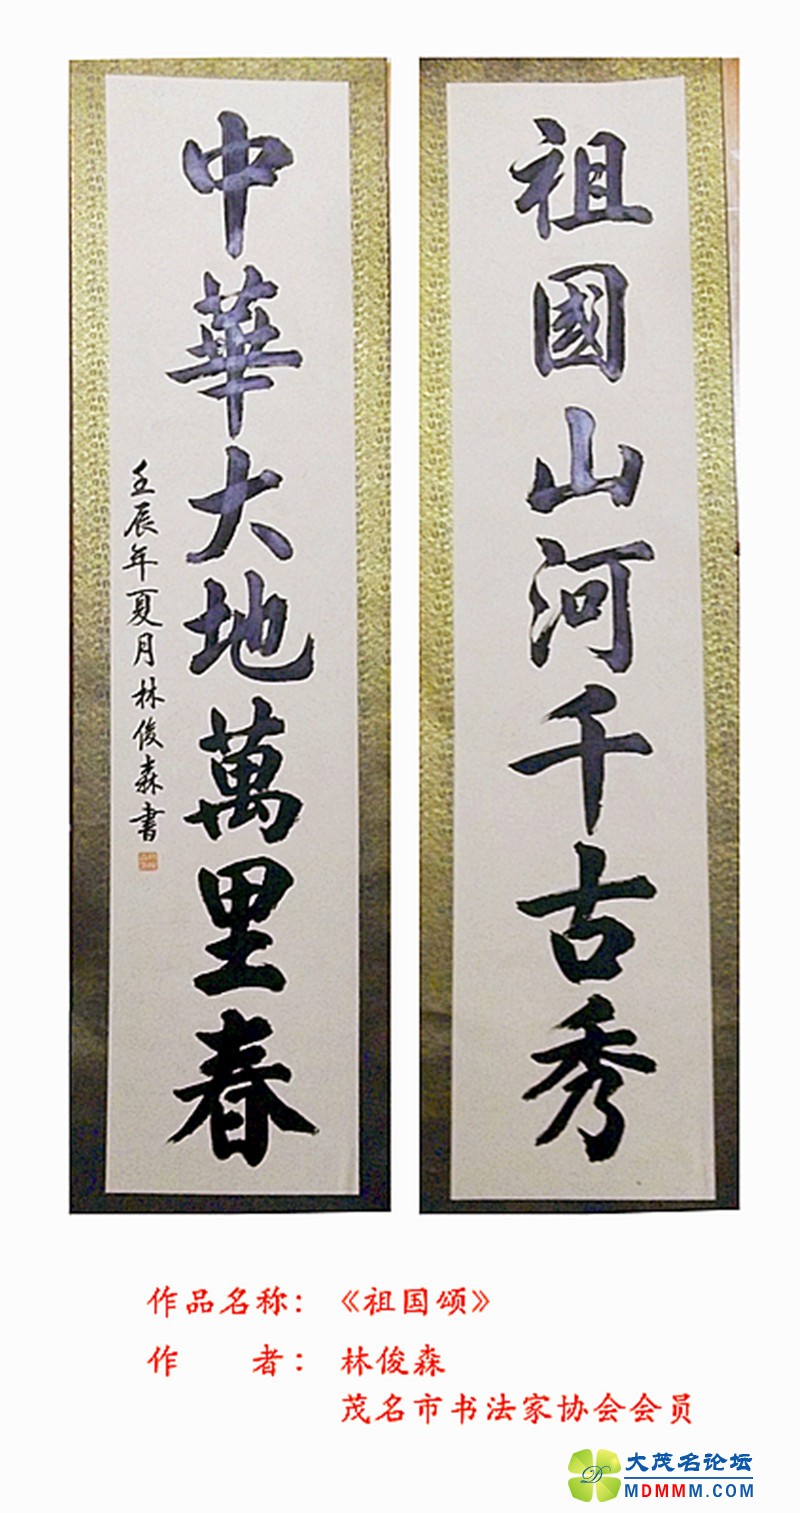 祖國山河千古秀
中華大地萬里春
壬辰年夏月林俊森書
作品名称：《祖国颂》
作 者：林俊森
茂名市书法家协会会员
大茂名论坛
MDMMM.COM